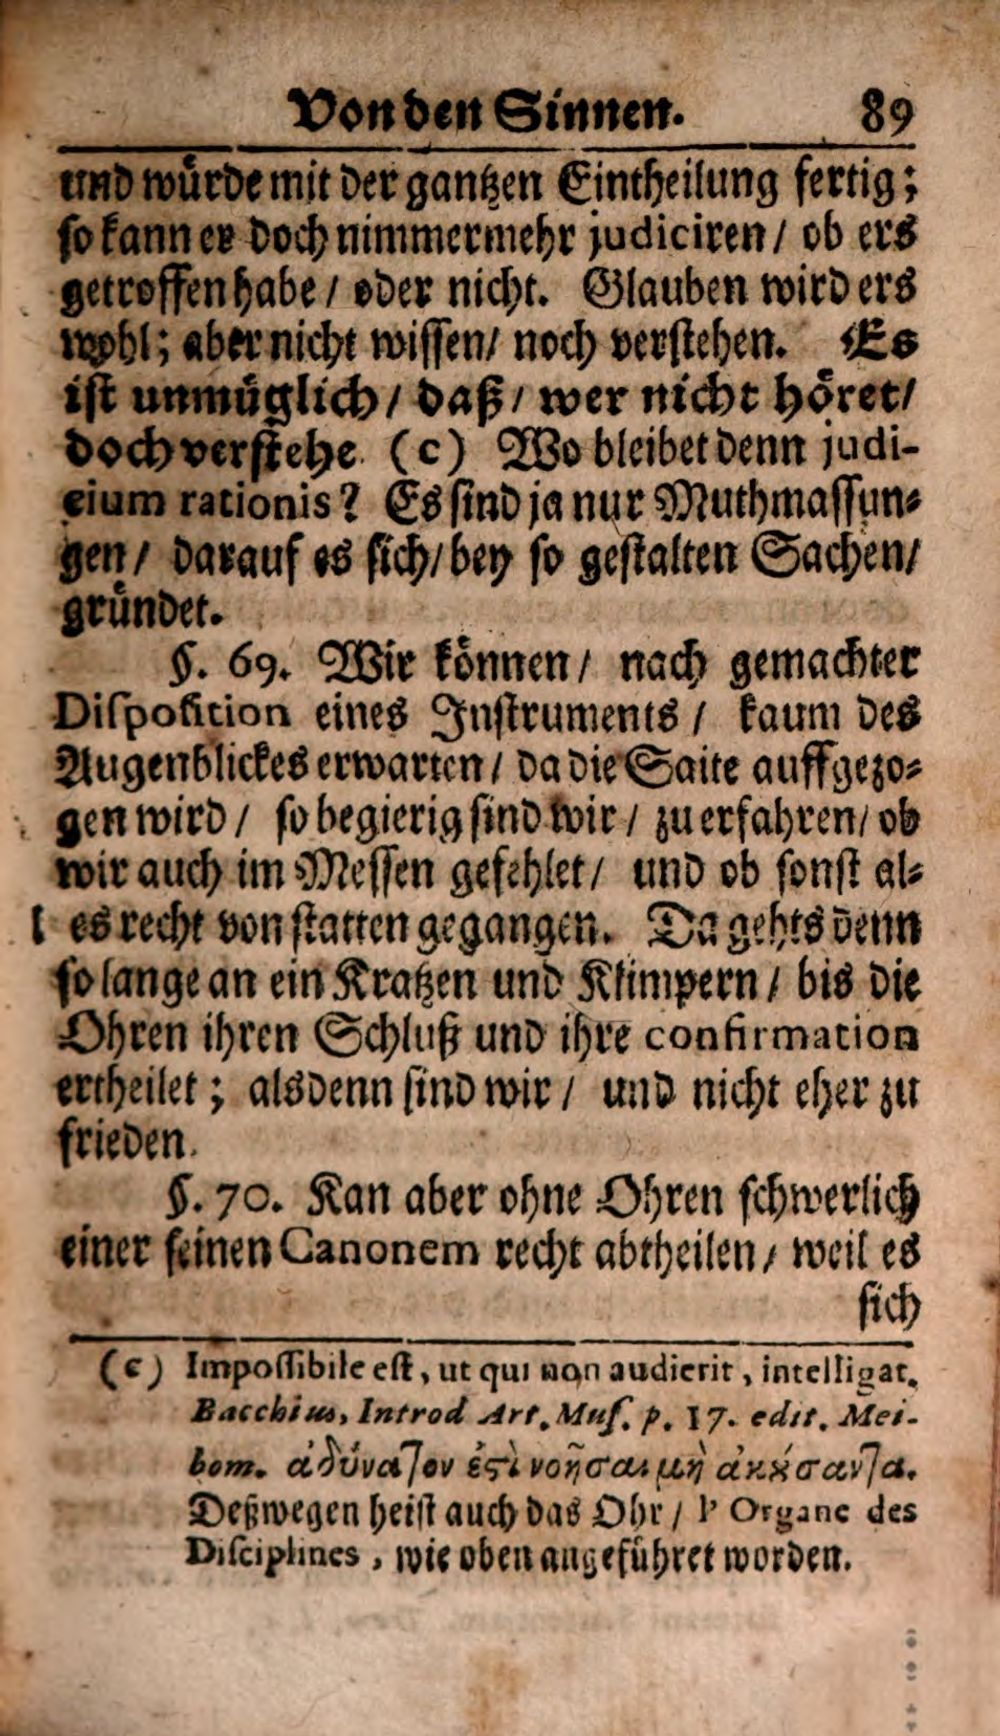 Von den Sinnen. 89
und würde mit der gantzen Eintheilung fertig;
so kann er doch nimmermehr judiciren / ob ers
getroffen habe / oder nicht. Glauben wird ers
wohl; aber nicht wissen / noch verstehen. Es
ist unmüglich / daß / wer nicht höret /
doch verstehe (c) Wo bleibet denn judi-
cium rationis? Es sind ja nur Muthmassun-
gen / darauf es sich / bey so gestalten Sachen /
gründet.
§. 69. Wir können / nach gemachter
Disposition eines Instruments / kaum des
Augenblickes erwarten / da die Saite auffgezo-
gen wird / so begierig sind wir / zu erfahren / ob
wir auch im Messen gefehlet / und ob sonst al-
l es recht von statten gegangen. Da gehts denn
so lange an ein Kratzen und Klimpern / bis die
Ohren ihren Schluß und ihre confirmation
ertheilet; alsdenn sind wir / und nicht eher zu
frieden.
§. 70. Kan aber ohne Ohren schwerlich
einer seinen Canonem recht abtheilen / weil es
sich
(c) Impossibile est, ut qui non audierit, intelligat.
Bacchius, Introd Art. Mus. p. 17. edit. Mei-
bom. ἀδύνατον ἐςὶ νοῆσαι μὴ ἀκȣ́σαντα.
Deßwegen heist auch das Ohr / l' Organe des
Disciplines, wie oben angeführet worden.